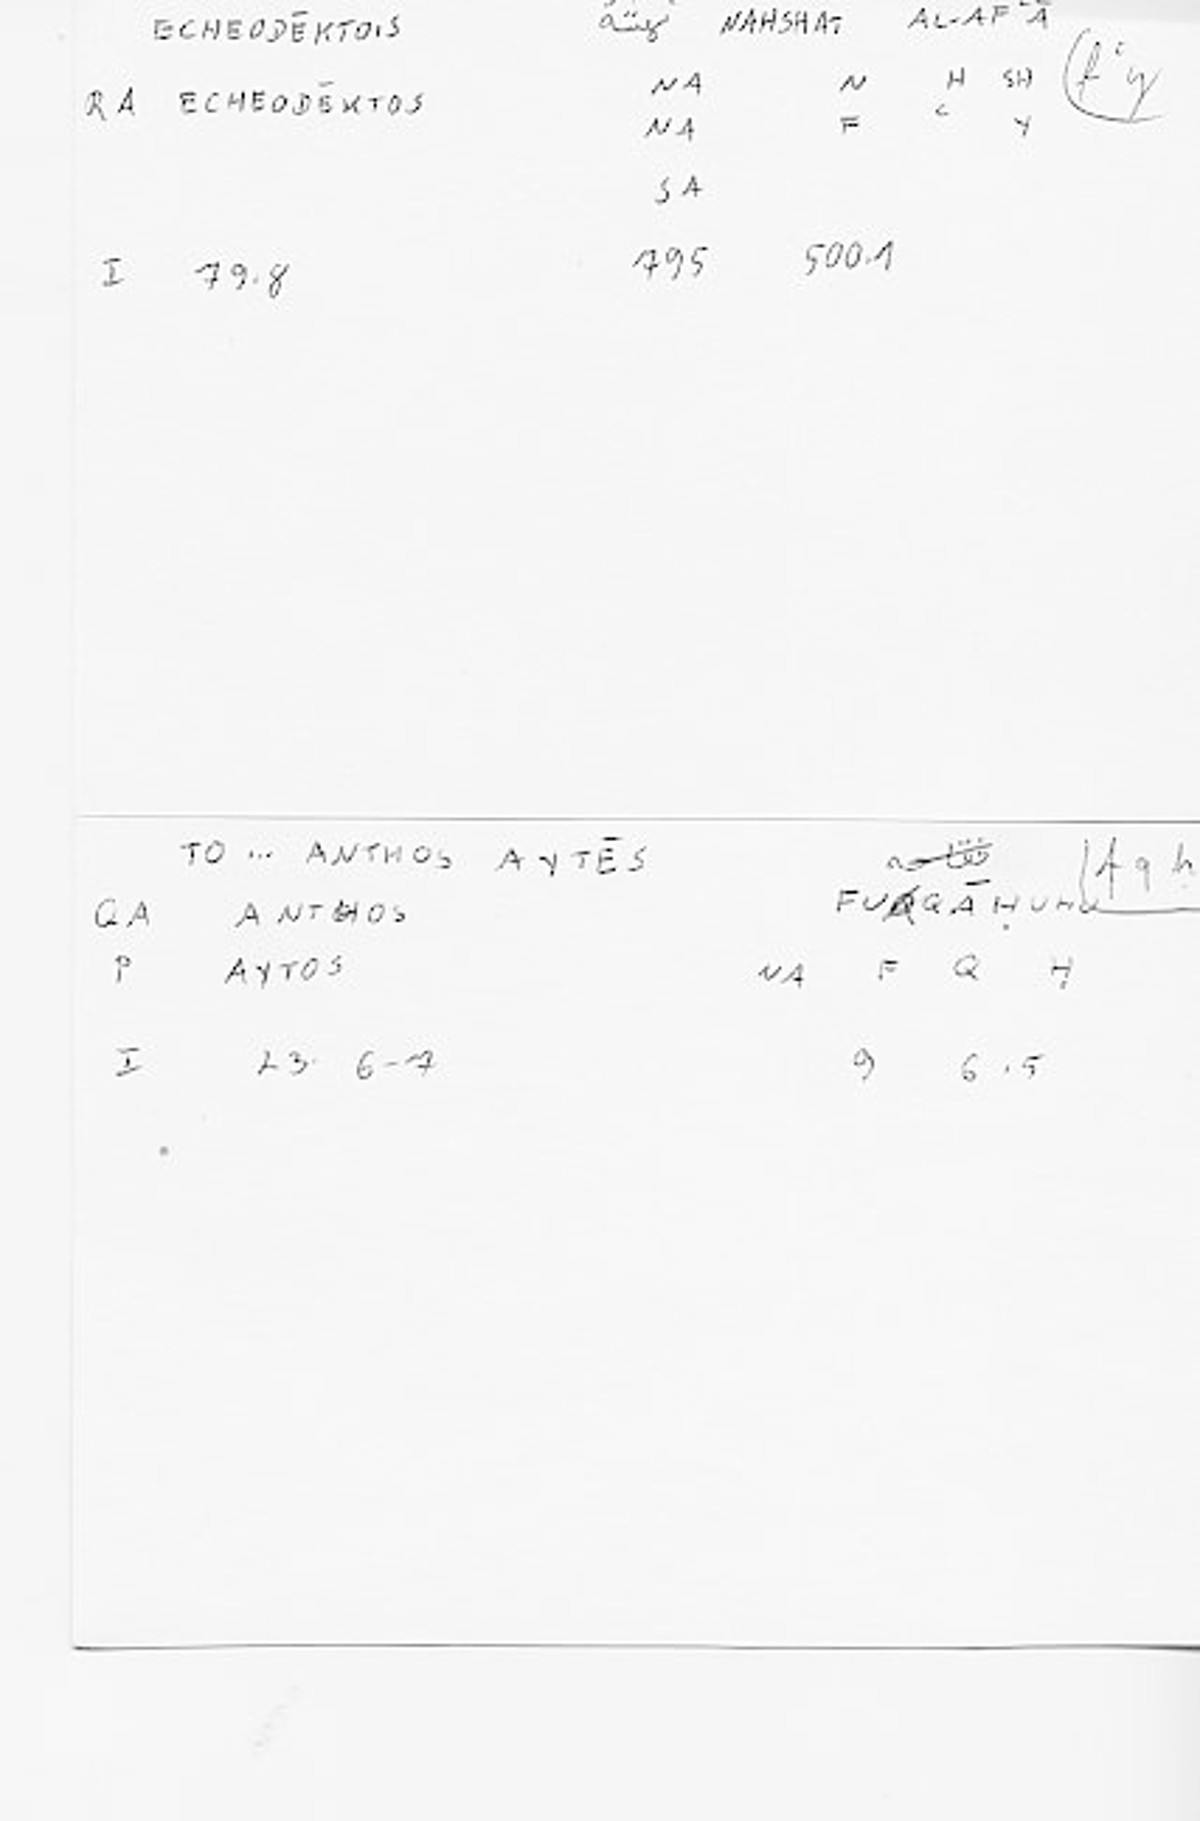 ECHEODĒKTOIS NAHSHAT AL-AFʿĀ
RA ECHEODĒKTOS NA N H SH (fʿy
NA F ʿ Y
SA
I 79.8 795 500.1
TO ... ANTHOS AYTĒS
FUQQĀḤUHU (fqḥ
QA ANTHOS
P AYTOS NA F Q Ḥ
I 23. 6-7 9 6.5